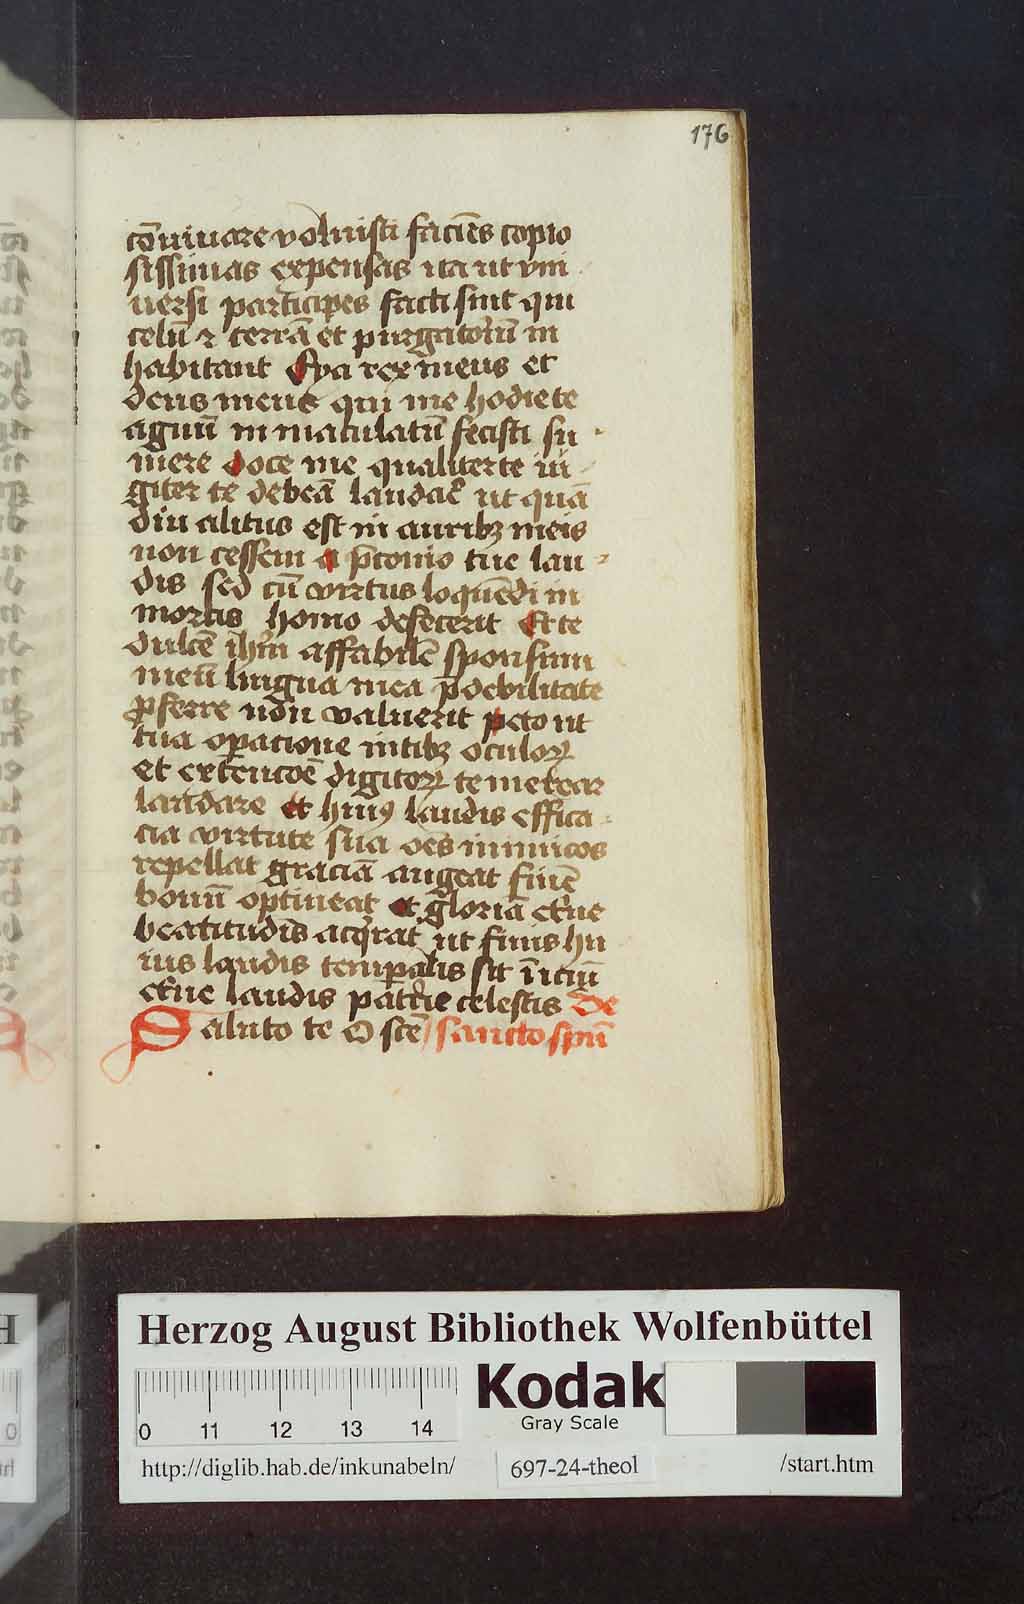 176
cōuiuare voluisti faciēs copio
sissimas expensas ita ut vni
uersi participes facti sint qui
celū ⁊ terrā et purgatoriū in
habitant Eya rex meus et
deus meus qui me hodie te
agnū inmaculatū fecisti su
mere doce me qualiter te iu
giter te debeā laudar̄ ut quā
diu alitus est in auribꝫ meis
non cessem a p̄conio tue lau
dis sed cū virtus loquēdi in
mortis homo defecerit Et te
dulcē ihm̄ affabilē sponsum
meū lingua mea p̄ debilitate
ꝓferre non valuerit peto ut
tua oꝑacione nutibꝫ oculoꝝ
et extencōe digitoꝝ te merear
laudare et huiꝰ laudis effica
cia virtute sua oēs inimicos
repellat graciā augeat finē
bonū optineat et gloriā et̄ne
beatitudis acq̄rat ut finis hu
ius laudis temꝑalis sit īiciū
et̄ne laudis patrie celestis De
Saluto te O scē sancto spū
Herzog August Bibliothek Wolfenbüttel
0 11 12 13 14
Kodak
Gray Scale
http://diglib.hab.de/inkunabeln/ 697-24-theol /start.htm